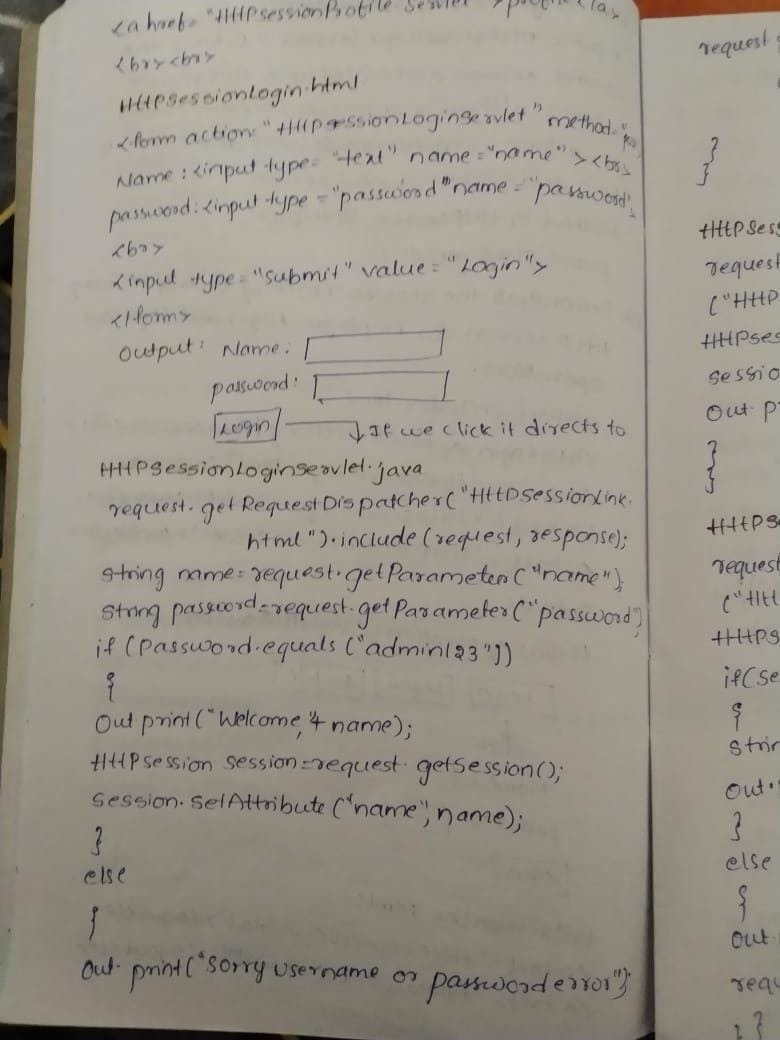 <a href="HttpsessionProfile Servlet >profile</a>
<br><br>
HttpsessionLogin.html
<form action="HttpsessionLoginservlet" method="
Name:<input type="text" name="name"><br>
password:<input type="password" name="password"
<br>
<input type="submit" value="Login">
</form>
output: Name:
password:
Login If we click it directs to
HttpsessionLoginservlet.java
request.getRequestDispatcher("HttpsessionLink.
html").include(request, response);
string name=request.getParameter("name");
string password=request.getParameter("password")
if (Password.equals("admin123"))
{
Out print("Welcome,"+ name);
Httpsession session=request.getsession();
session.setAttribute("name", name);
}
else
{
Out print("sorry username or password error");
request
}
}
HttpSess
request
("Http
Httpses
sessio
out p
}
}
HttpS
request
("Htt
HttpS
if(se
{
strin
out.
}
else
{
out.
requ
} }